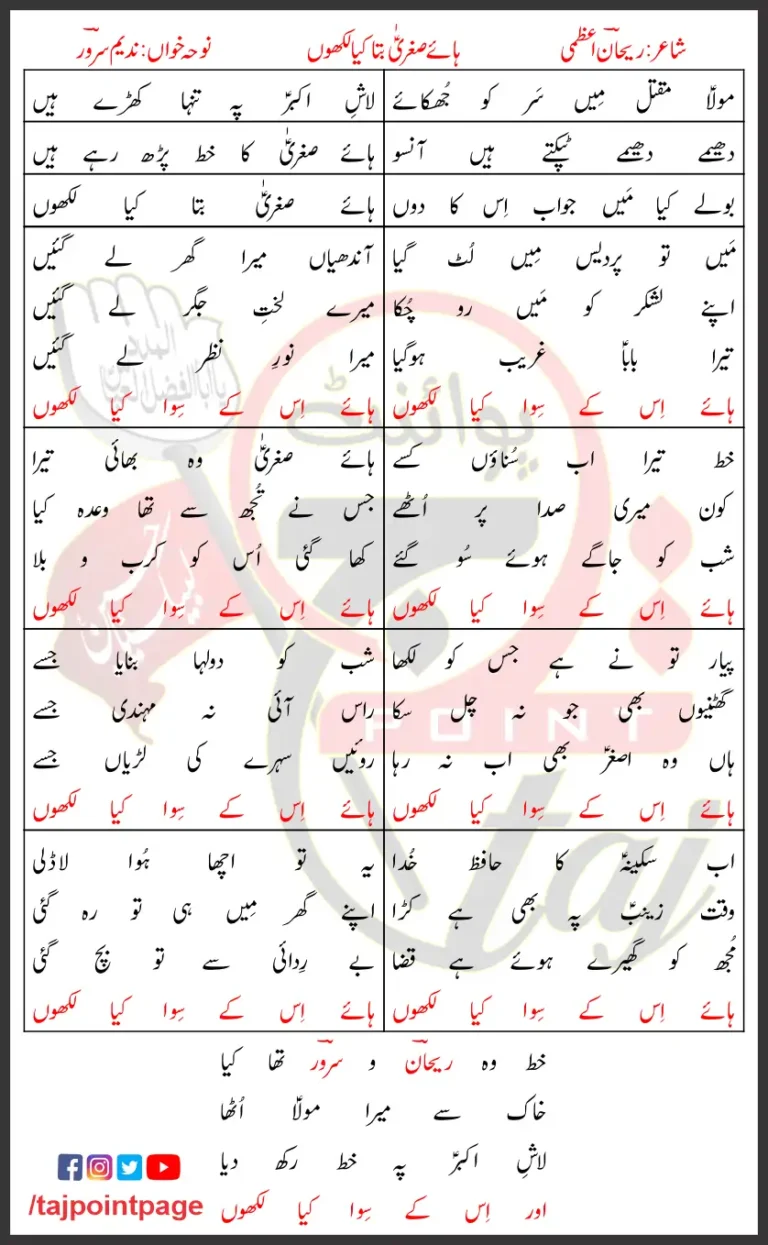 شاعر: ریحانؔ اعظمی
ہائے صغریٰؑ بتا کیا لکھوں
نوحہ خواں: ندیم سرورؔ
مولاؑ مقتل مِیں سَر کو جُھکائے
لاشِ اکبرؑ پہ تنہا کھڑے ہیں
دھیمے دھیمے ٹپکتے ہیں آنسو
ہائے صغریٰؑ کا خط پڑھ رہے ہیں
بولے کیا مَیں جواب اِس کا دوں
ہائے صغریٰؑ بتا کیا لکھوں
مَیں تو پردیس مِیں لُٹ گیا
اپنے لشکر کو مَیں رو چُکا
تیرا باباؑ غریب ہوگیا
ہائے اِس کے سِوا کیا لکھوں
آندھیاں میرا گھر لے گئیں
میرے لختِ جگر لے گئیں
میرا نورِ نظر لے گئیں
ہائے اِس کے سِوا کیا لکھوں
خط تیرا اب سُناؤں کسے
کون میری صدا پر اُٹھے
شب کو جاگے ہوئے سُو گئے
ہائے اِس کے سِوا کیا لکھوں
ہائے صغریٰؑ وہ بھائی تیرا
جس نے تُجھ سے تھا وعدہ کیا
کھا گئی اُس کو کرب و بلا
ہائے اِس کے سِوا کیا لکھوں
پیار تو نے ہے جس کو لکھا
گھٹنیوں بھی جو نہ چل سکا
ہاں وہ اصغرؑ بھی اب نہ رہا
ہائے اِس کے سِوا کیا لکھوں
شب کو دولہا بنایا جسے
راس آئی نہ مہندی جسے
روئیں سہرے کی لڑیاں جسے
ہائے اِس کے سِوا کیا لکھوں
اب سکینہؑ کا حافظ خُدا
وقت زینبؑ پہ بھی ہے کڑا
مُجھ کو گھیرے ہوئے ہے قضا
ہائے اِس کے سِوا کیا لکھوں
یہ تو اچھا ہُوا لاڈلی
اپنے گھر مِیں ہی تو رہ گئی
بے رِدائی سے تو بچ گئی
ہائے اِس کے سِوا کیا لکھوں
خط وہ ریحانؔ و سرورؔ تھا کیا
خاک سے میرا مولاؑ اُٹھا
لاشِ اکبرؑ پہ خط رکھ دیا
اور اِس کے سِوا کیا لکھوں
/tajpointpage
پوائنٹ
POINT
taj